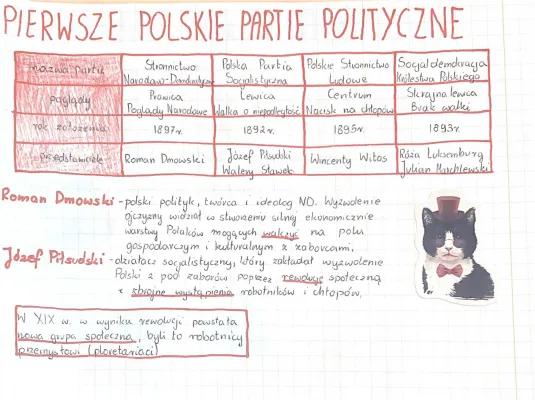 PIERWSZE POLSKIE PARTIE POLITYCZNE
nazwa partii Stronnictwo Narodowo-Demokratyczne Polska Partia Socjalistyczna Polskie Stronnictwo Ludowe Socjaldemokracja Królestwa Polskiego
poglądy Prawica Poglądy Narodowe Lewica Walka o niepodległość Centrum Nacisk na chłopów Skrajna lewica Brak walki
rok założenia 1897r. 1892r. 1895r. 1893r.
przedstawiciele Roman Dmowski Józef Piłsudski Walery Sławek Wincenty Witos Róża Luksemburg Julian Marchlewski
Roman Dmowski - polski polityk, twórca i ideolog ND. Wyzwolenie
ojczyzny widział w stworzeniu silnej ekonomicznie
warstwy Polaków mogących walczyć na polu
gospodarczym i kulturalnym z zaborcami.
Józef Piłsudski - działacz socjalistyczny, który zakładał wyzwolenie
Polski z pod zaborów poprzez rewolucję społeczną
i zbrojne wystąpienia robotników i chłopów.
W XIX w. w wyniku rewolucji powstała
nowa grupa społeczna, byli to robotnicy
przemysłowi (ploretariaci)